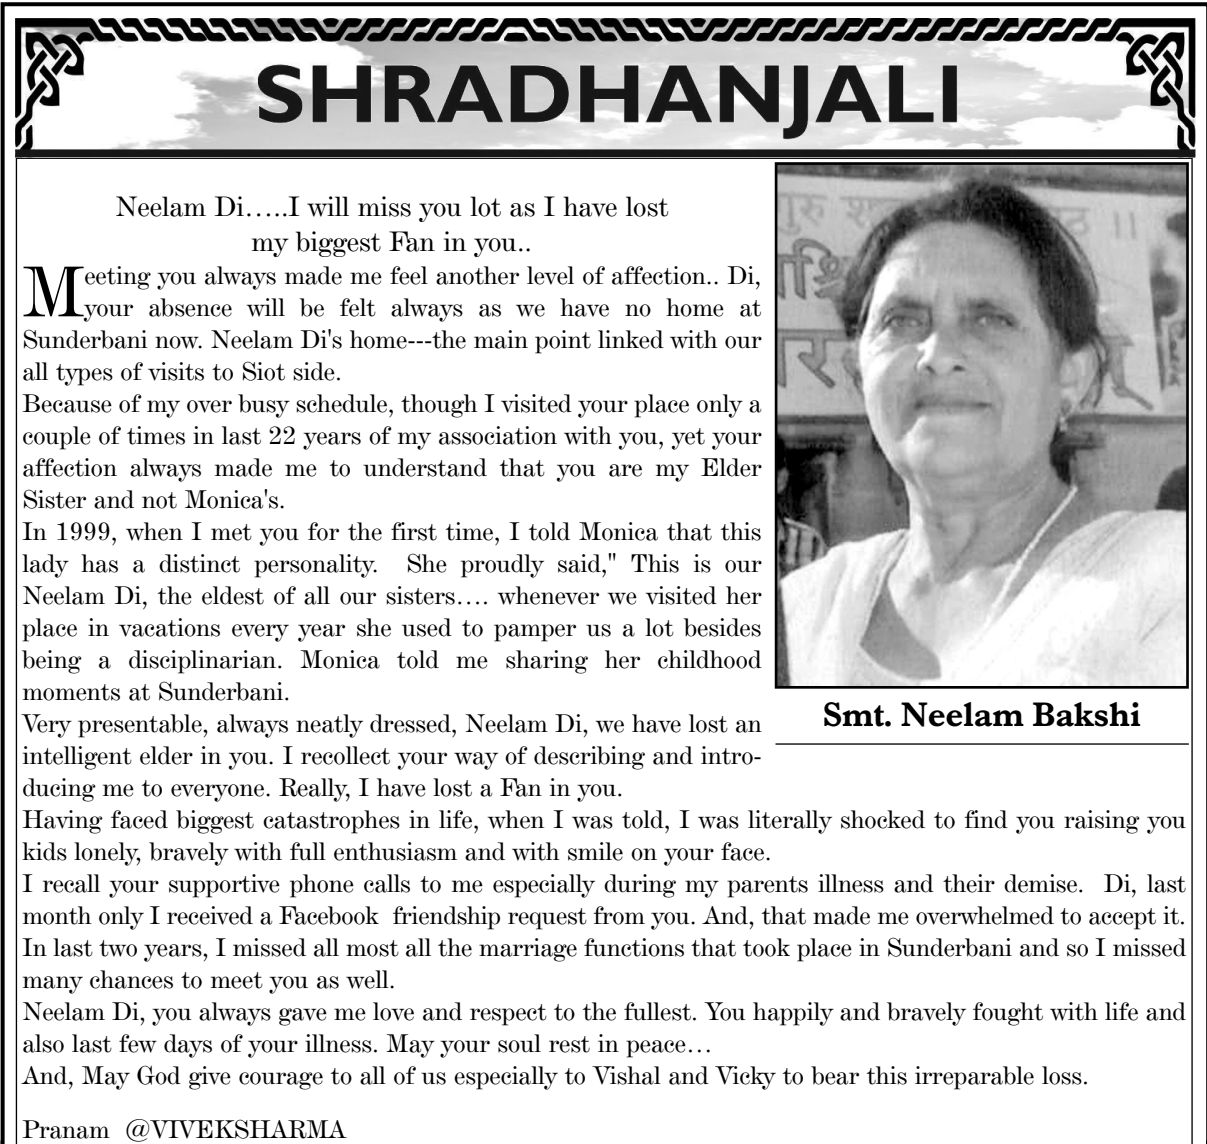 SHRADHANJALI
Neelam Di.....I will miss you lot as I have lost
my biggest Fan in you..
Meeting you always made me feel another level of affection.. Di,
your absence will be felt always as we have no home at
Sunderbani now. Neelam Di's home---the main point linked with our
all types of visits to Siot side.
Because of my over busy schedule, though I visited your place only a
couple of times in last 22 years of my association with you, yet your
affection always made me to understand that you are my Elder
Sister and not Monica's.
In 1999, when I met you for the first time, I told Monica that this
lady has a distinct personality.  She proudly said," This is our
Neelam Di, the eldest of all our sisters.... whenever we visited her
place in vacations every year she used to pamper us a lot besides
being a disciplinarian. Monica told me sharing her childhood
moments at Sunderbani.
Very presentable, always neatly dressed, Neelam Di, we have lost an
intelligent elder in you. I recollect your way of describing and intro-
ducing me to everyone. Really, I have lost a Fan in you.
Smt. Neelam Bakshi
Having faced biggest catastrophes in life, when I was told, I was literally shocked to find you raising you
kids lonely, bravely with full enthusiasm and with smile on your face.
I recall your supportive phone calls to me especially during my parents illness and their demise.  Di, last
month only I received a Facebook  friendship request from you. And, that made me overwhelmed to accept it.
In last two years, I missed all most all the marriage functions that took place in Sunderbani and so I missed
many chances to meet you as well.
Neelam Di, you always gave me love and respect to the fullest. You happily and bravely fought with life and
also last few days of your illness. May your soul rest in peace...
And, May God give courage to all of us especially to Vishal and Vicky to bear this irreparable loss.
Pranam  @VIVEKSHARMA